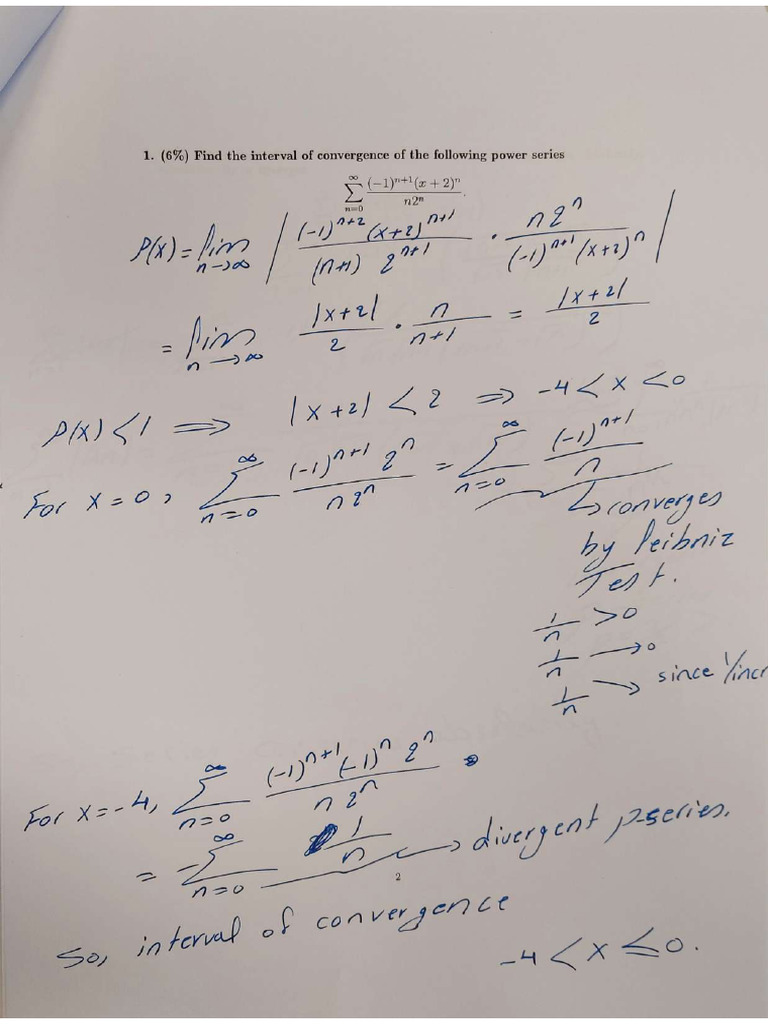 1. (6%) Find the interval of convergence of the following power series
∑_{n=0}^{∞} (-1)^{n+1}(x + 2)^n / n2^n .
ρ(x) = lim_{n→∞} | (-1)^{n+2} (x+2)^{n+1} / (n+1) 2^{n+1} · n 2^n / (-1)^{n+1} (x+2)^n |
= lim_{n→∞} |x+2| / 2 · n / n+1 = |x+2| / 2
ρ(x) < 1 ⟹ |x+2| < 2 ⟹ -4 < x < 0
For x = 0, ∑_{n=0}^{∞} (-1)^{n+1} 2^n / n 2^n = ∑_{n=0}^{∞} (-1)^{n+1} / n
↳ converges
by Leibniz
Test.
1/n > 0
1/n → 0
1/n → since 1/incr
For x = -4, ∑_{n=0}^{∞} (-1)^{n+1} (-1)^n 2^n / n 2^n .
= -∑_{n=0}^{∞} 1/n → divergent p-series.
2
So, interval of convergence
-4 < x ≤ 0.